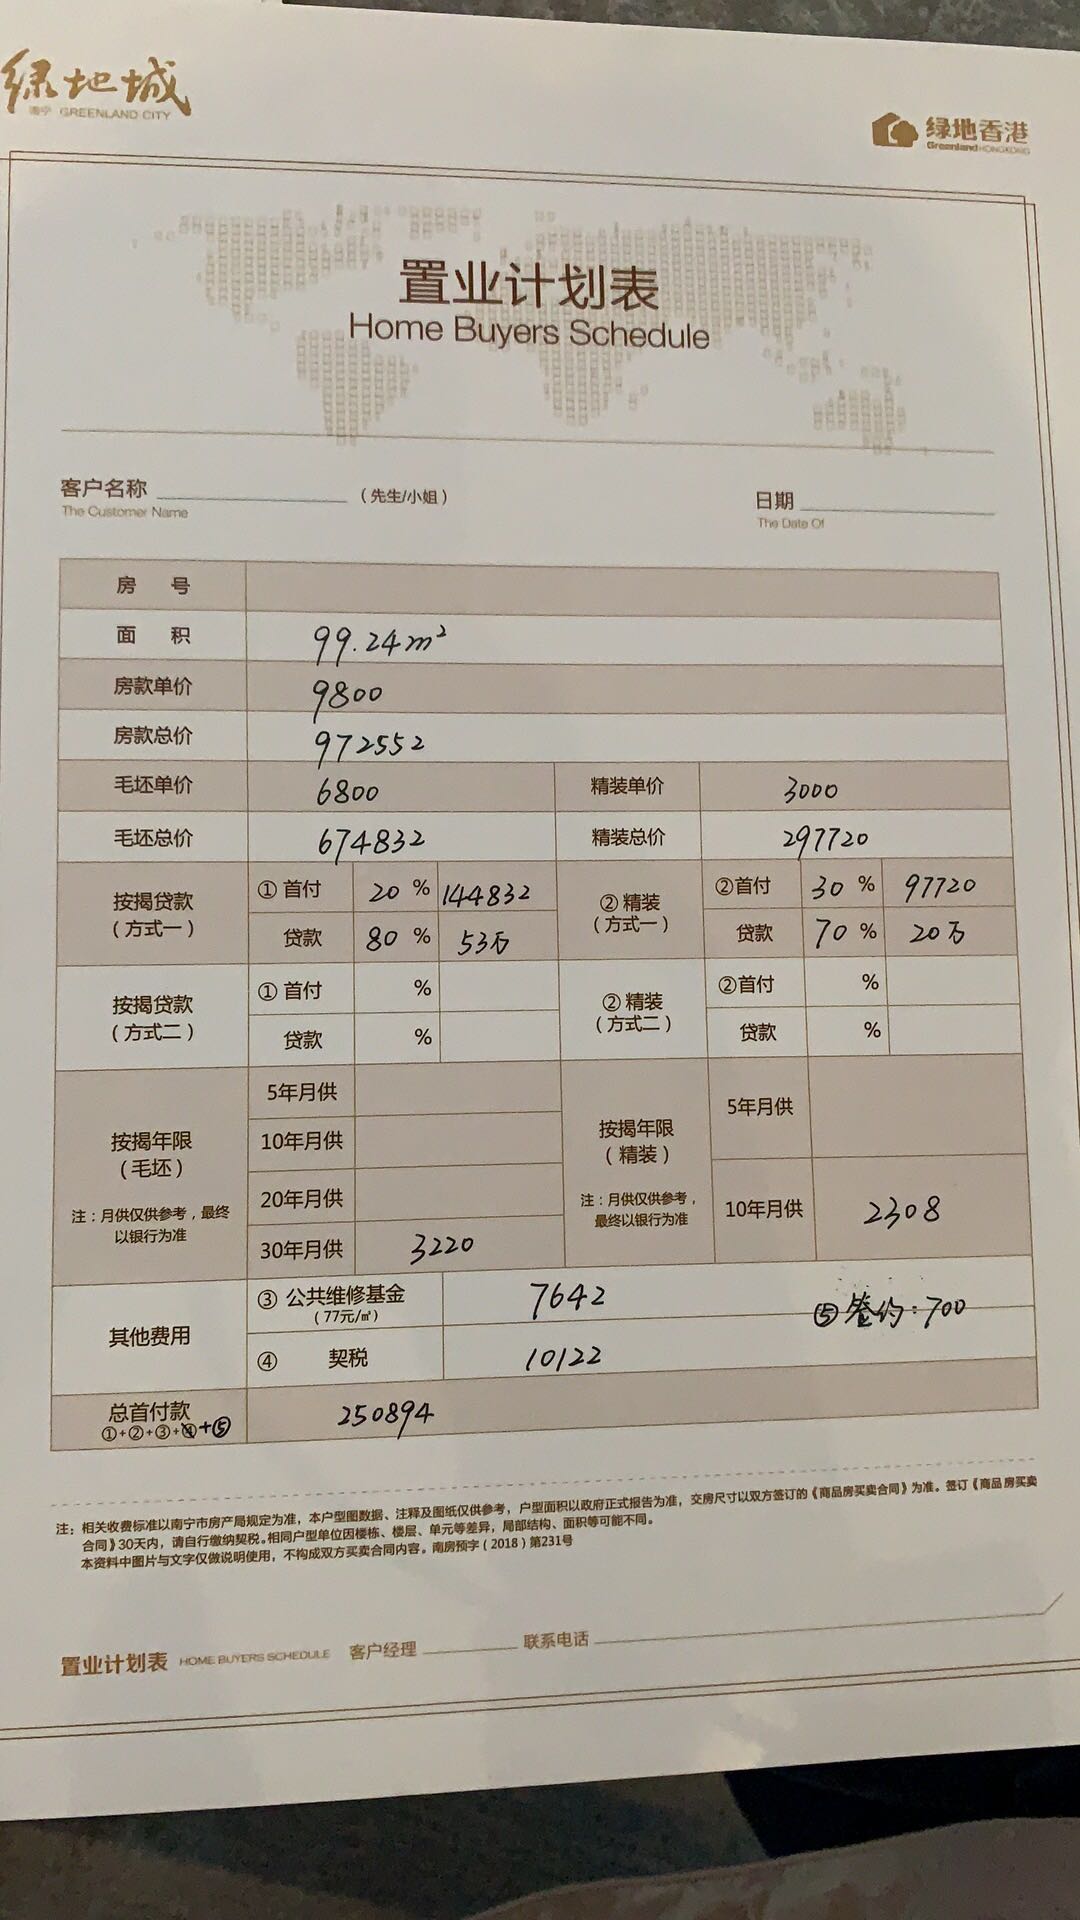 绿地城
南宁 GREENLAND CITY
绿地香港
Greenland HONGKONG
置业计划表
Home Buyers Schedule
客户名称 （先生/小姐）
The Customer Name
日期
The Date Of
房 号
面 积 99.24m²
房款单价 9800
房款总价 972552
毛坯单价 6800 精装单价 3000
毛坯总价 674832 精装总价 297720
按揭贷款（方式一） ① 首付 20 % 144832 ② 精装（方式一） ②首付 30 % 97720
贷款 80 % 53万 贷款 70 % 20万
按揭贷款（方式二） ① 首付 % ② 精装（方式二） ②首付 %
贷款 % 贷款 %
按揭年限（毛坯）
注：月供仅供参考，最终以银行为准
5年月供
10年月供
20年月供
30年月供 3220
按揭年限（精装）
注：月供仅供参考，最终以银行为准
5年月供
10年月供 2308
其他费用 ③ 公共维修基金（77元/㎡） 7642 ⑤ 签约：700
④ 契税 10122
总首付款 250894
①+②+③+④+⑤
注：相关收费标准以南宁市房产局规定为准，本户型图数据、注释及图纸仅供参考，户型面积以政府正式报告为准，交房尺寸以双方签订的《商品房买卖合同》为准。签订《商品房买卖
合同》30天内，请自行缴纳契税。相同户型单位因楼栋、楼层、单元等差异，局部结构、面积等可能不同。
本资料中图片与文字仅做说明使用，不构成双方买卖合同内容。南房预字（2018）第231号
置业计划表 HOME BUYERS SCHEDULE 客户经理 联系电话